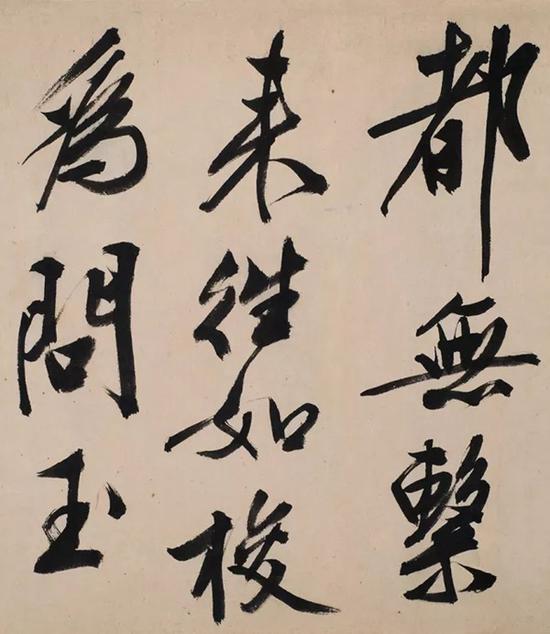 都無繫
来往如梭
為問玉